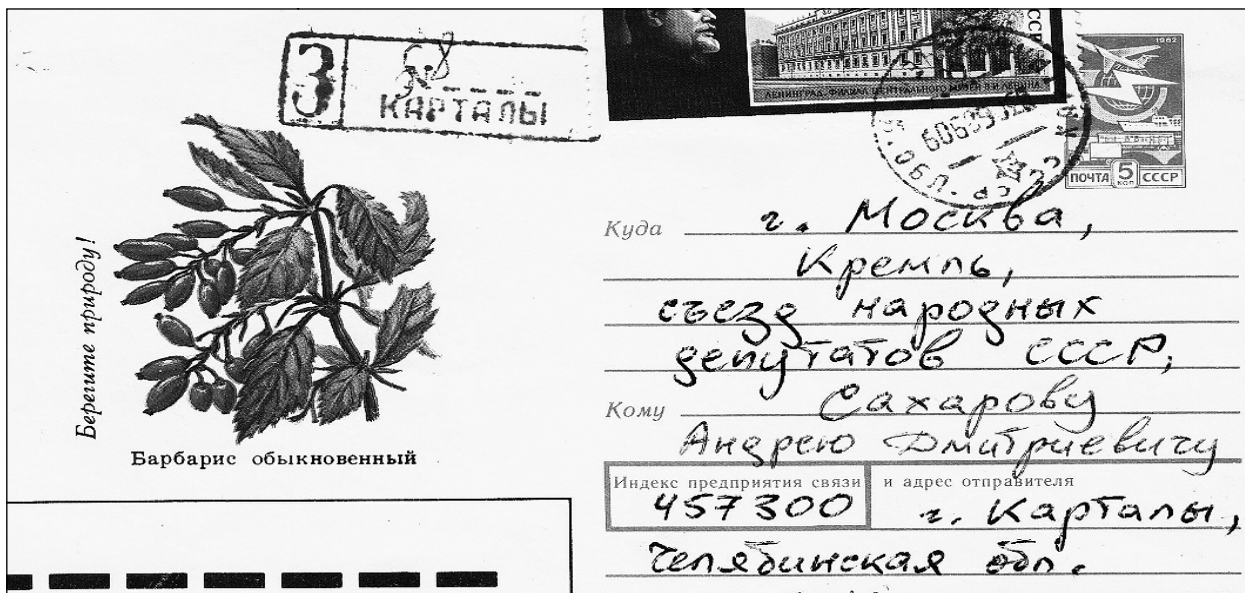 З
№
КАРТАЛЫ
СССР
ЛЕНИНГРАД. ФИЛИАЛ ЦЕНТРАЛЬНОГО МУЗЕЯ В.И.ЛЕНИНА
1982
ПОЧТА 5 КОП СССР
Берегите природу!
Барбарис обыкновенный
Куда г. Москва,
Кремль,
съезд народных
депутатов СССР,
Кому Сахарову
Андрею Дмитриевичу
Индекс предприятия связи и адрес отправителя
457300 г. Карталы,
Челябинская обл.